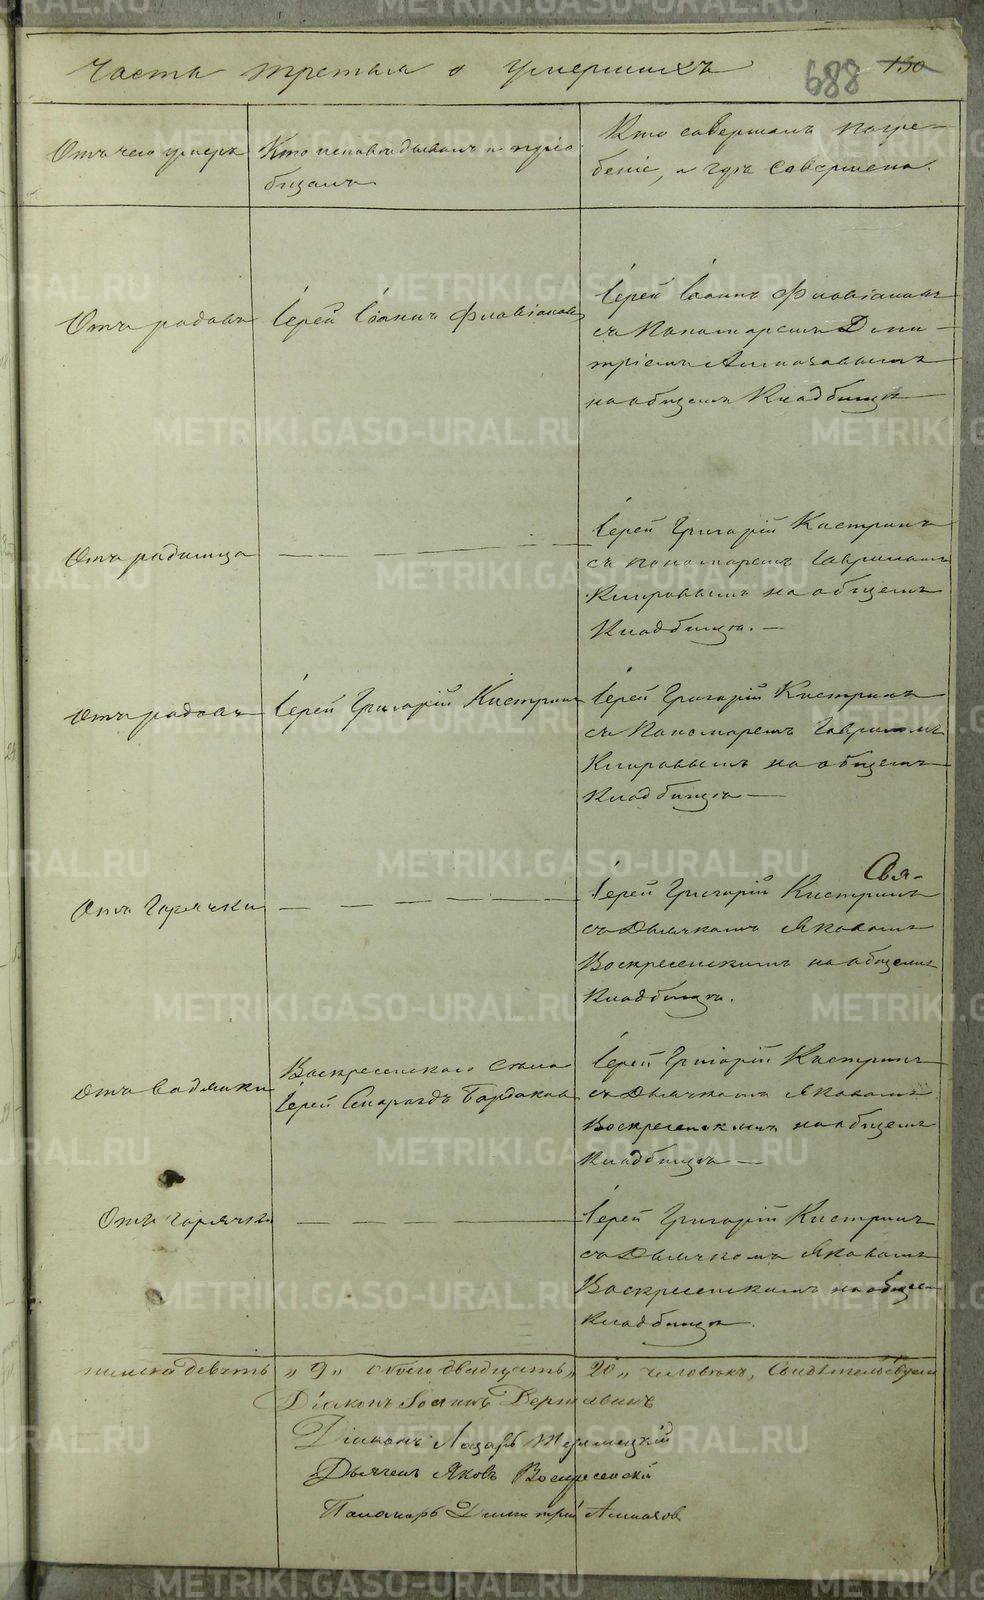 Часть третья о умершихъ
688 130
Отъ чего умеръ
Кто исповѣдывалъ и пріоб
бщалъ
Кто совершалъ погре-
беніе, и гдѣ совершена.
Отъ родовъ
Іерей Іоаннъ Флавіановъ
Іерей Іоаннъ Флавіановъ
съ Пономаремъ Дми-
тріемъ Алмазовымъ
на общемъ Кладбищѣ
Отъ родимца
Іерей Григорій Кастринъ
съ пономаремъ Гавриломъ
на общемъ
Кладбищѣ.
Отъ родовъ
Іерей Григорій Кастринъ
Іерей Григорій Кастринъ
съ Пономаремъ Гавриломъ
на общемъ
Кладбищѣ
Отъ Горячки
Свя-
Іерей Григорій Кастринъ
съ Дьячкомъ Яковомъ
Воскресенскимъ на общемъ
Кладбищѣ.
Отъ водянки
Воскресенскаго села
Іерей Смарагдъ
Іерей Григорій Кастринъ
съ Дьячкомъ Яковомъ
Воскресенскимъ на общемъ
Кладбищѣ
Отъ горячки
Іерей Григорій Кастринъ
съ Дьячкомъ Яковомъ
Воскресенскимъ на общем
Кладбищѣ.
девять „ 9 „ обоего двадцать „ 20 „ человѣкъ, Свидѣтельствуем
Діаконъ Іоаннъ Державинъ
Діаконъ Лазарь
Дьячекъ Яковъ Воскресенскій
Пономарь Димитрій Алмазов
METRIKI.GASO-URAL.RU